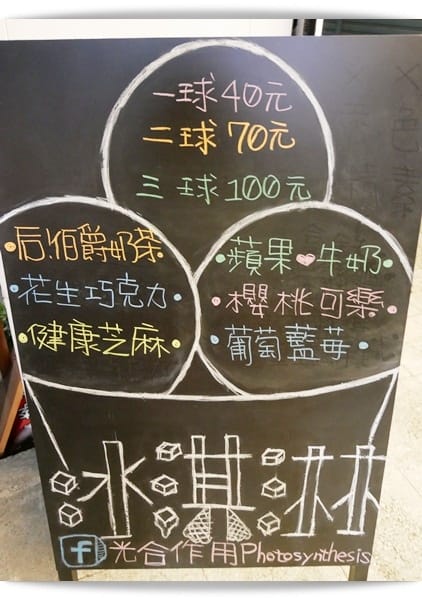 一球40元
二球 70元
三球100元
后.伯爵奶茶
花生巧克力
健康芝麻
蘋果牛奶
櫻桃可樂
葡萄藍莓
冰淇林
f 光合作用Photosynthesis